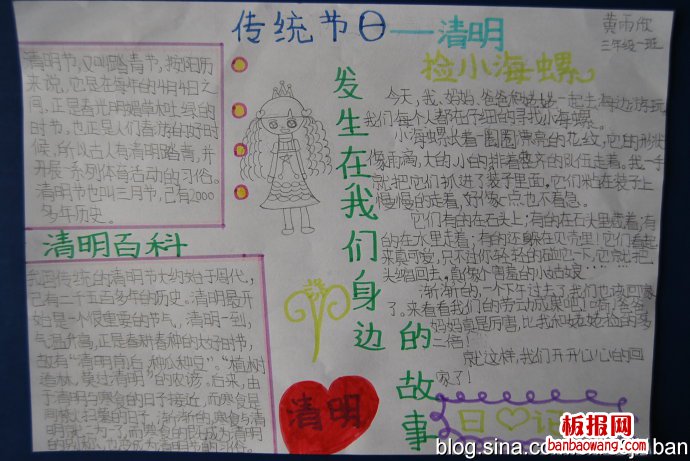 传统节日——清明
黄雨欣
三年级一班
清明节,又叫踏青节,按阳历
来说,它是在每年的4月4日之
间,正是春光明媚草木吐绿的
时节,也正是人们春游的好时
候,所以古人有清明踏青,并
开展一系列体育活动的习俗。
清明节也叫三月节,已有2000
多年历史。
清明百科
我国传统的清明节大约始于周代,
已有二千五百多年的历史。清明最开
始是一个很重要的节气,清明一到,
气温升高,正是春耕春种的大好时节,
故有“清明前后,种瓜种豆”。“植树
造林,莫过清明”的农谚。后来,由
于清明与寒食的日子接近,而寒食是
民间禁火扫墓的日子,渐渐的,寒食与清
明
发生在我们身边
的故事
清明
捡小海螺
今天,我、妈妈、爸爸和姥姥一起去海边游玩,
我们每个人都在仔细的寻找小海螺。
小海螺长着一圈圈漂亮的花纹,它的形状
像距离,大的小的排着整齐的队伍走着。我一手
就把它们抓进了袋子里面,它们粘在袋子上
慢慢的走着,好像一点也不着急。
它们有的在石头上;有的在石头里藏着;有
的在水里走着;有的还躲在贝壳里!它们看起
来真可爱,只不过你轻轻的碰它一下,它就把
头缩回去,真像个害羞的小姑娘……
渐渐的,一个下午过去了我们也该回家
了。来看看我们的劳动成果吧!嗬,爸爸
妈妈真是厉害,比我和姥姥捡的多
二倍!
就这样,我们开开心心的回
家了!
日记
板报网
www.banbaowang.com
blog.sina.com
ban